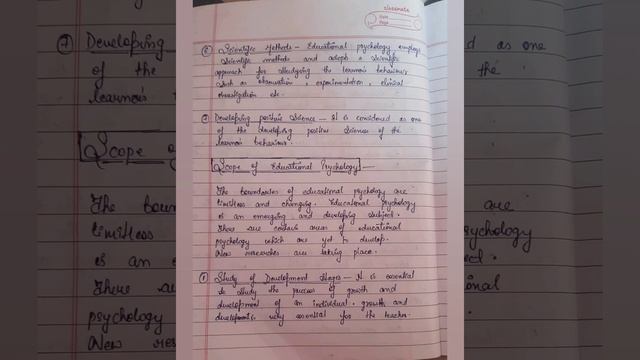 classmate
Date
Page
⑥ Scientific Methods - Educational psychology employs
scientific methods and adopts a scientific
approach for studying the learners behaviour
such as observation, experimentation, clinical
investigation etc.
⑦ Developing positive Science - It is considered as one
of the developing positive science of the
learner's behaviour.
Scope of Educational Psychology -
The boundaries of educational psychology are
limitless and changing. Educational Psychology
is an emerging and developing subject.
There are certain areas of educational
psychology which are yet to develop.
New researches are taking place.
① Study of Development Stages - It is essential
to study the process of growth and
development of an individual. growth and
development very essential for the teacher